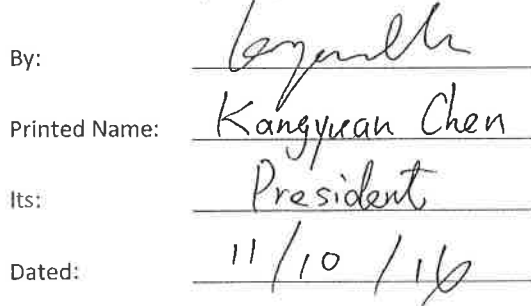 By:
Printed Name: Kangyuan Chen
Its: President
Dated: 11/10/16